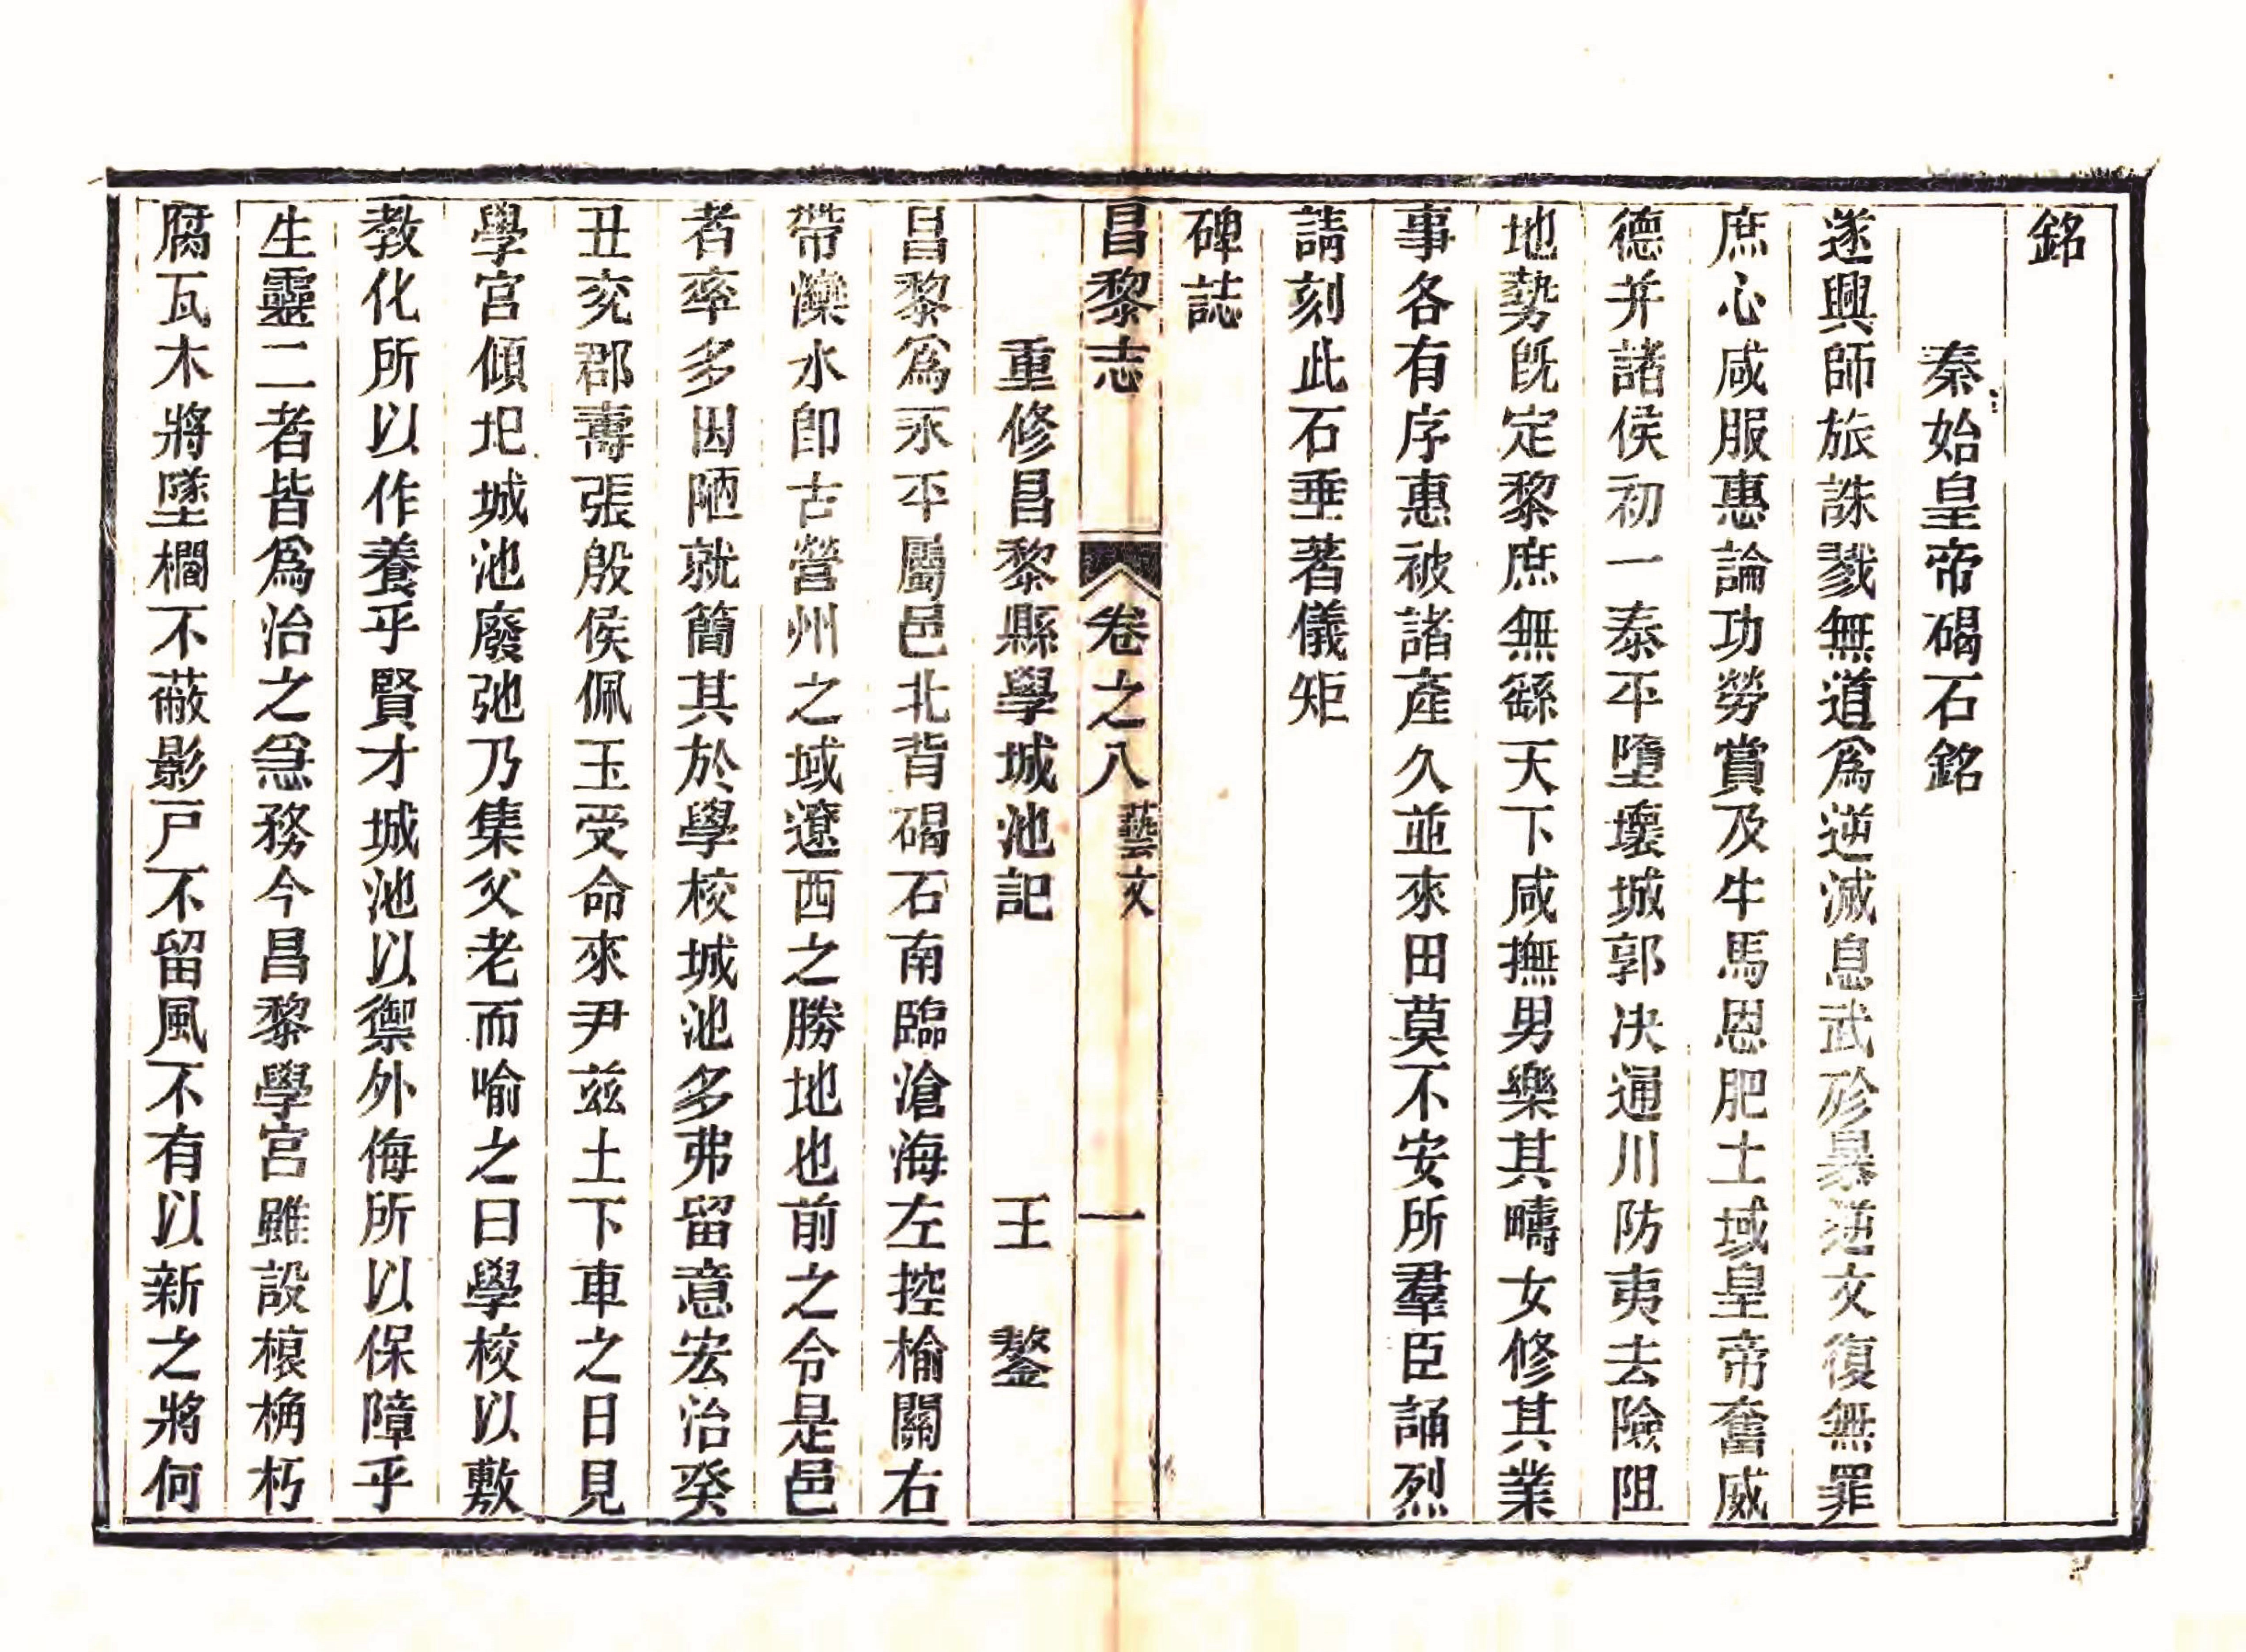 銘
秦始皇帝碣石銘
遂興師旅誅戮無道爲逆滅息武殄暴逆文復無罪
庶心咸服惠論功勞賞及牛馬恩肥土域皇帝奮威
德并諸侯初一泰平墮壞城郭决通川防夷去險阻
地勢旣定黎庶無繇天下咸撫男樂其疇女修其業
事各有序惠被諸產久並來田莫不安所羣臣誦烈
請刻此石垂著儀矩
碑誌
昌黎志 卷之八 藝文 一
重修昌黎縣學城池記 王鏊
昌黎爲永平屬邑北背碣石南臨滄海左控榆關右
帶灤水卽古營州之域遼西之勝地也前之令是邑
者率多因陋就簡其於學校城池多弗留意宏治癸
丑兖郡壽張殷侯佩玉受命來尹兹土下車之日見
學宮傾圯城池廢弛乃集父老而喻之曰學校以敷
教化所以作養乎賢才城池以禦外侮所以保障乎
生靈二者皆爲治之急務今昌黎學宮雖設榱桷朽
腐瓦木將墜櫚不蔽影戸不留風不有以新之將何